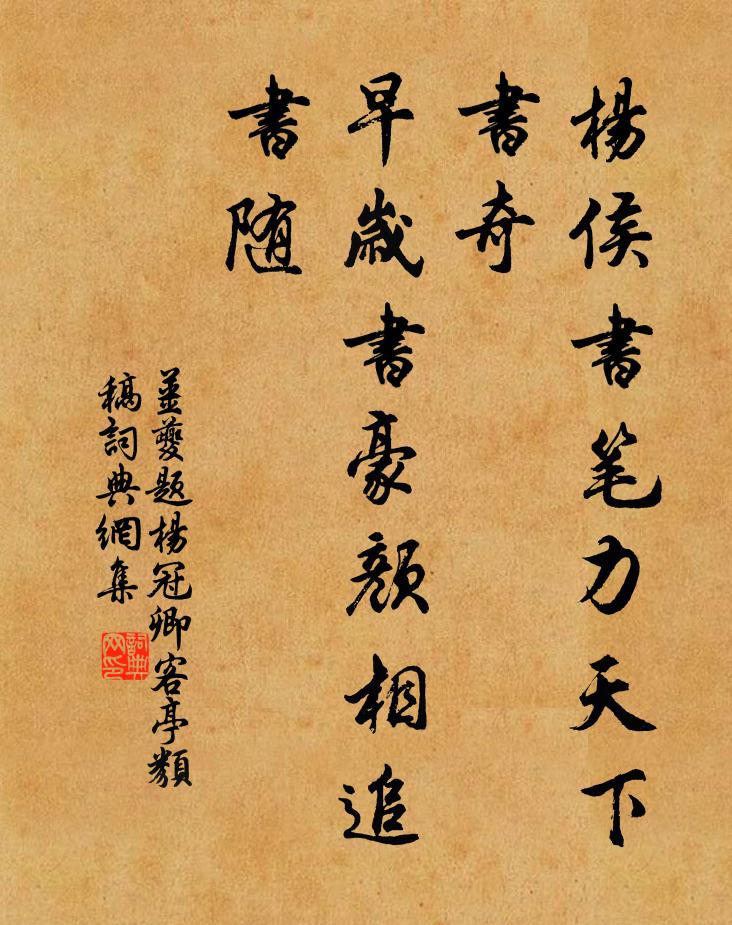 楊侯書笔力天下
書奇
早歲書豪顔相追
書随
姜夔題楊冠卿客亭類
稿詞典網集
詞典
网印